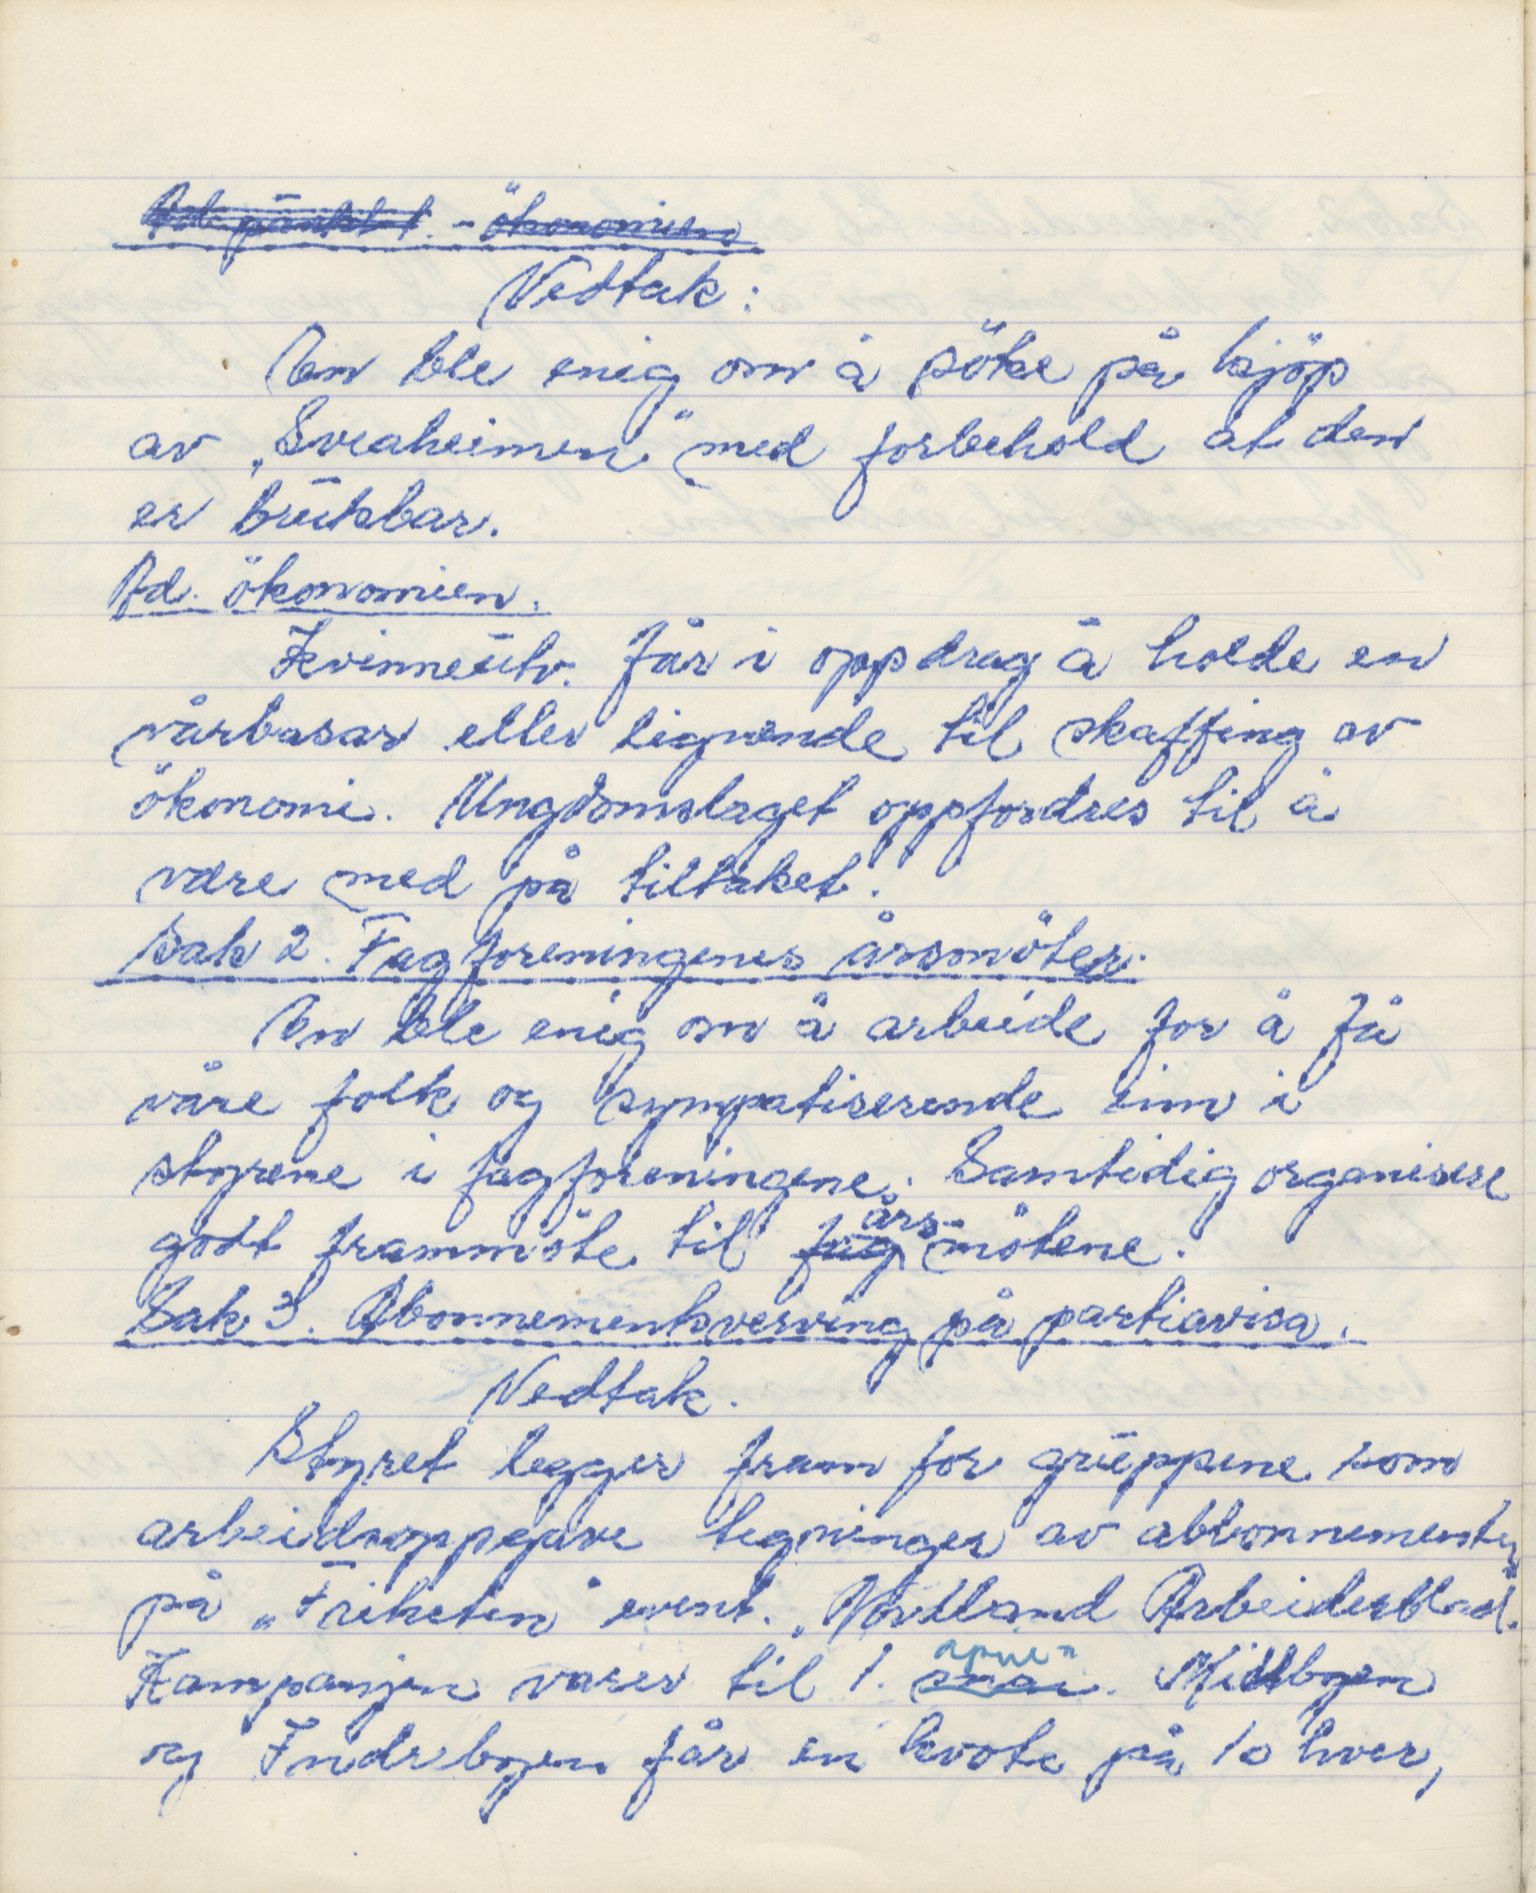 Ad. punkt 1. - Ökonomien
Vedtak:
En ble enig om å söke på kjöp
av „Sveaheimen" med forbehold at den
er brukbar.
Ad. ökonomien.
Kvinneutv. får i oppdrag å holde en
vårbasar eller lignende til skaffing av
ökonomi. Ungdomslaget oppfordres til å
være med på tiltaket.
Sak 2. Fagforeningenes årsmöter.
En ble enig om å arbeide for å få
våre folk og sympatiserende inn i
styrene i fagforeningene. Samtidig organisere
godt frammöte til fag årsmötene.
Sak 3. Abonnementsverving på partiavisa.
Vedtak.
Styret legger fram for gruppene som
arbeidsoppgave tegninger av abbonnementer
på „Friheten" event. „Nordland Arbeiderblad".
Kampanjen varer til 1. mai. april Midtbyen
og Indrebyen får en kvote på 10 hver,